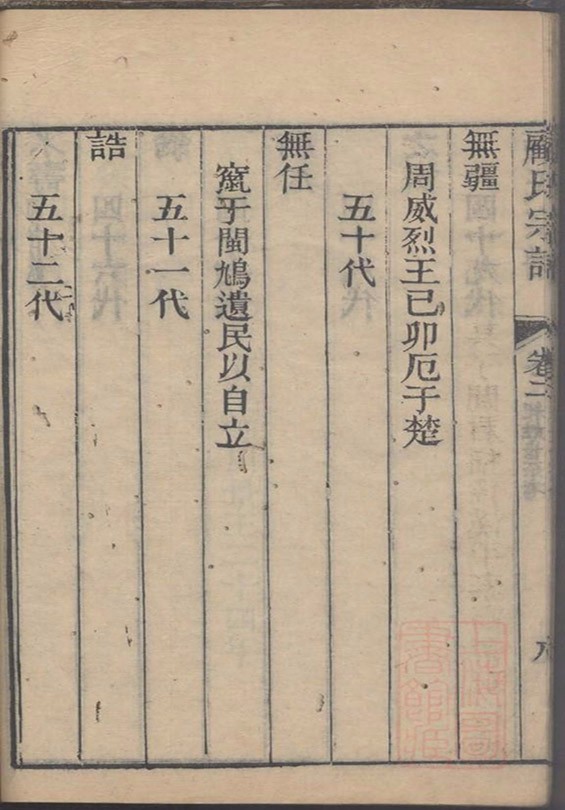 顧氏宗譜
卷二
無疆
周威烈王己卯厄于楚
五十代
無任
竄于閩鳩遺民以自立
五十一代
誥
五十二代